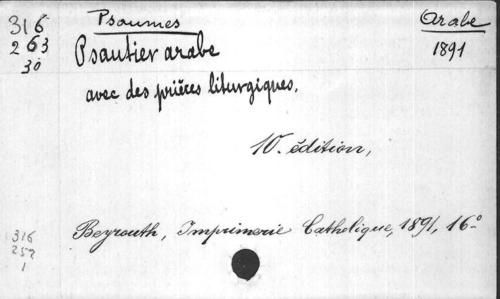 316
263
30
Psaumes
Arabe
1891
Psautier arabe
avec des prières liturgiques.
10e. édition,
Beyrouth, Imprimerie Catholique, 1891, 16°
316
257
1